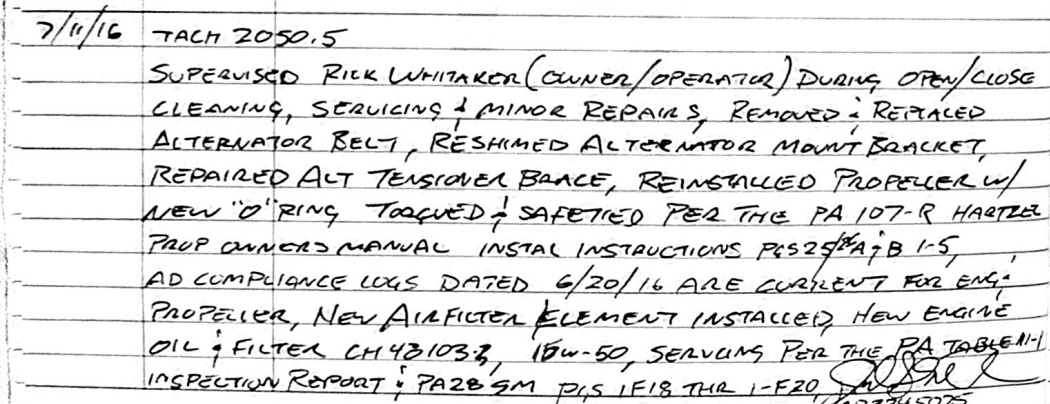 7/11/16 TACH 2050.5
SUPERVISED RICK WHITAKER (OWNER/OPERATOR) DURING OPEN/CLOSE
CLEANING, SERVICING & MINOR REPAIRS, REMOVED & REPLACED
ALTERNATOR BELT, RESHIMED ALTERNATOR MOUNT BRACKET,
REPAIRED ALT TENSIONER BRACE, REINSTALLED PROPELLER W/
NEW "O" RING TORQUED & SAFETIED PER THE PA 107-R HARTZEL
PROP OWNERS MANUAL INSTAL INSTRUCTIONS PGS 25/26 A & B 1-5,
AD COMPLIANCE LOGS DATED 6/20/16 ARE CURRENT FOR ENG &
PROPELLER, NEW AIRFILTER ELEMENT INSTALLED, NEW ENGINE
OIL & FILTER CH48103-2, 15W-50, SERVICING PER THE PA TABLE III-1
INSPECTION REPORT & PA28 SM PGS 1F18 THR 1-F20,